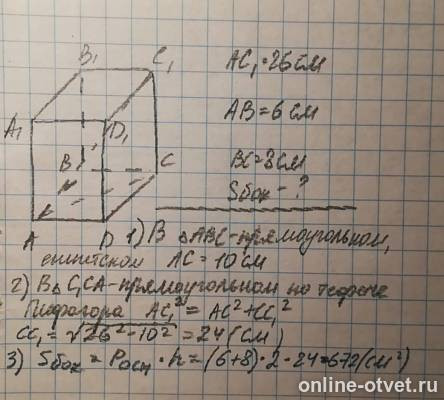 B₁ C₁
A₁ D₁
B C
A D
AC₁ = 26 см
AB = 6 см
BC = 8 см
Sбок - ?
1) В △ABC - прямоугольном,
египетском AC = 10 см
2) В△ C₁CA - прямоугольном по теореме
Пифагора AC₁² = AC² + CC₁²
CC₁ = √26² - 10² = 24 (см)
3) Sбок = Pосн · h = (6+8) · 2 · 24 = 672 (см²)
online-otvet.ru